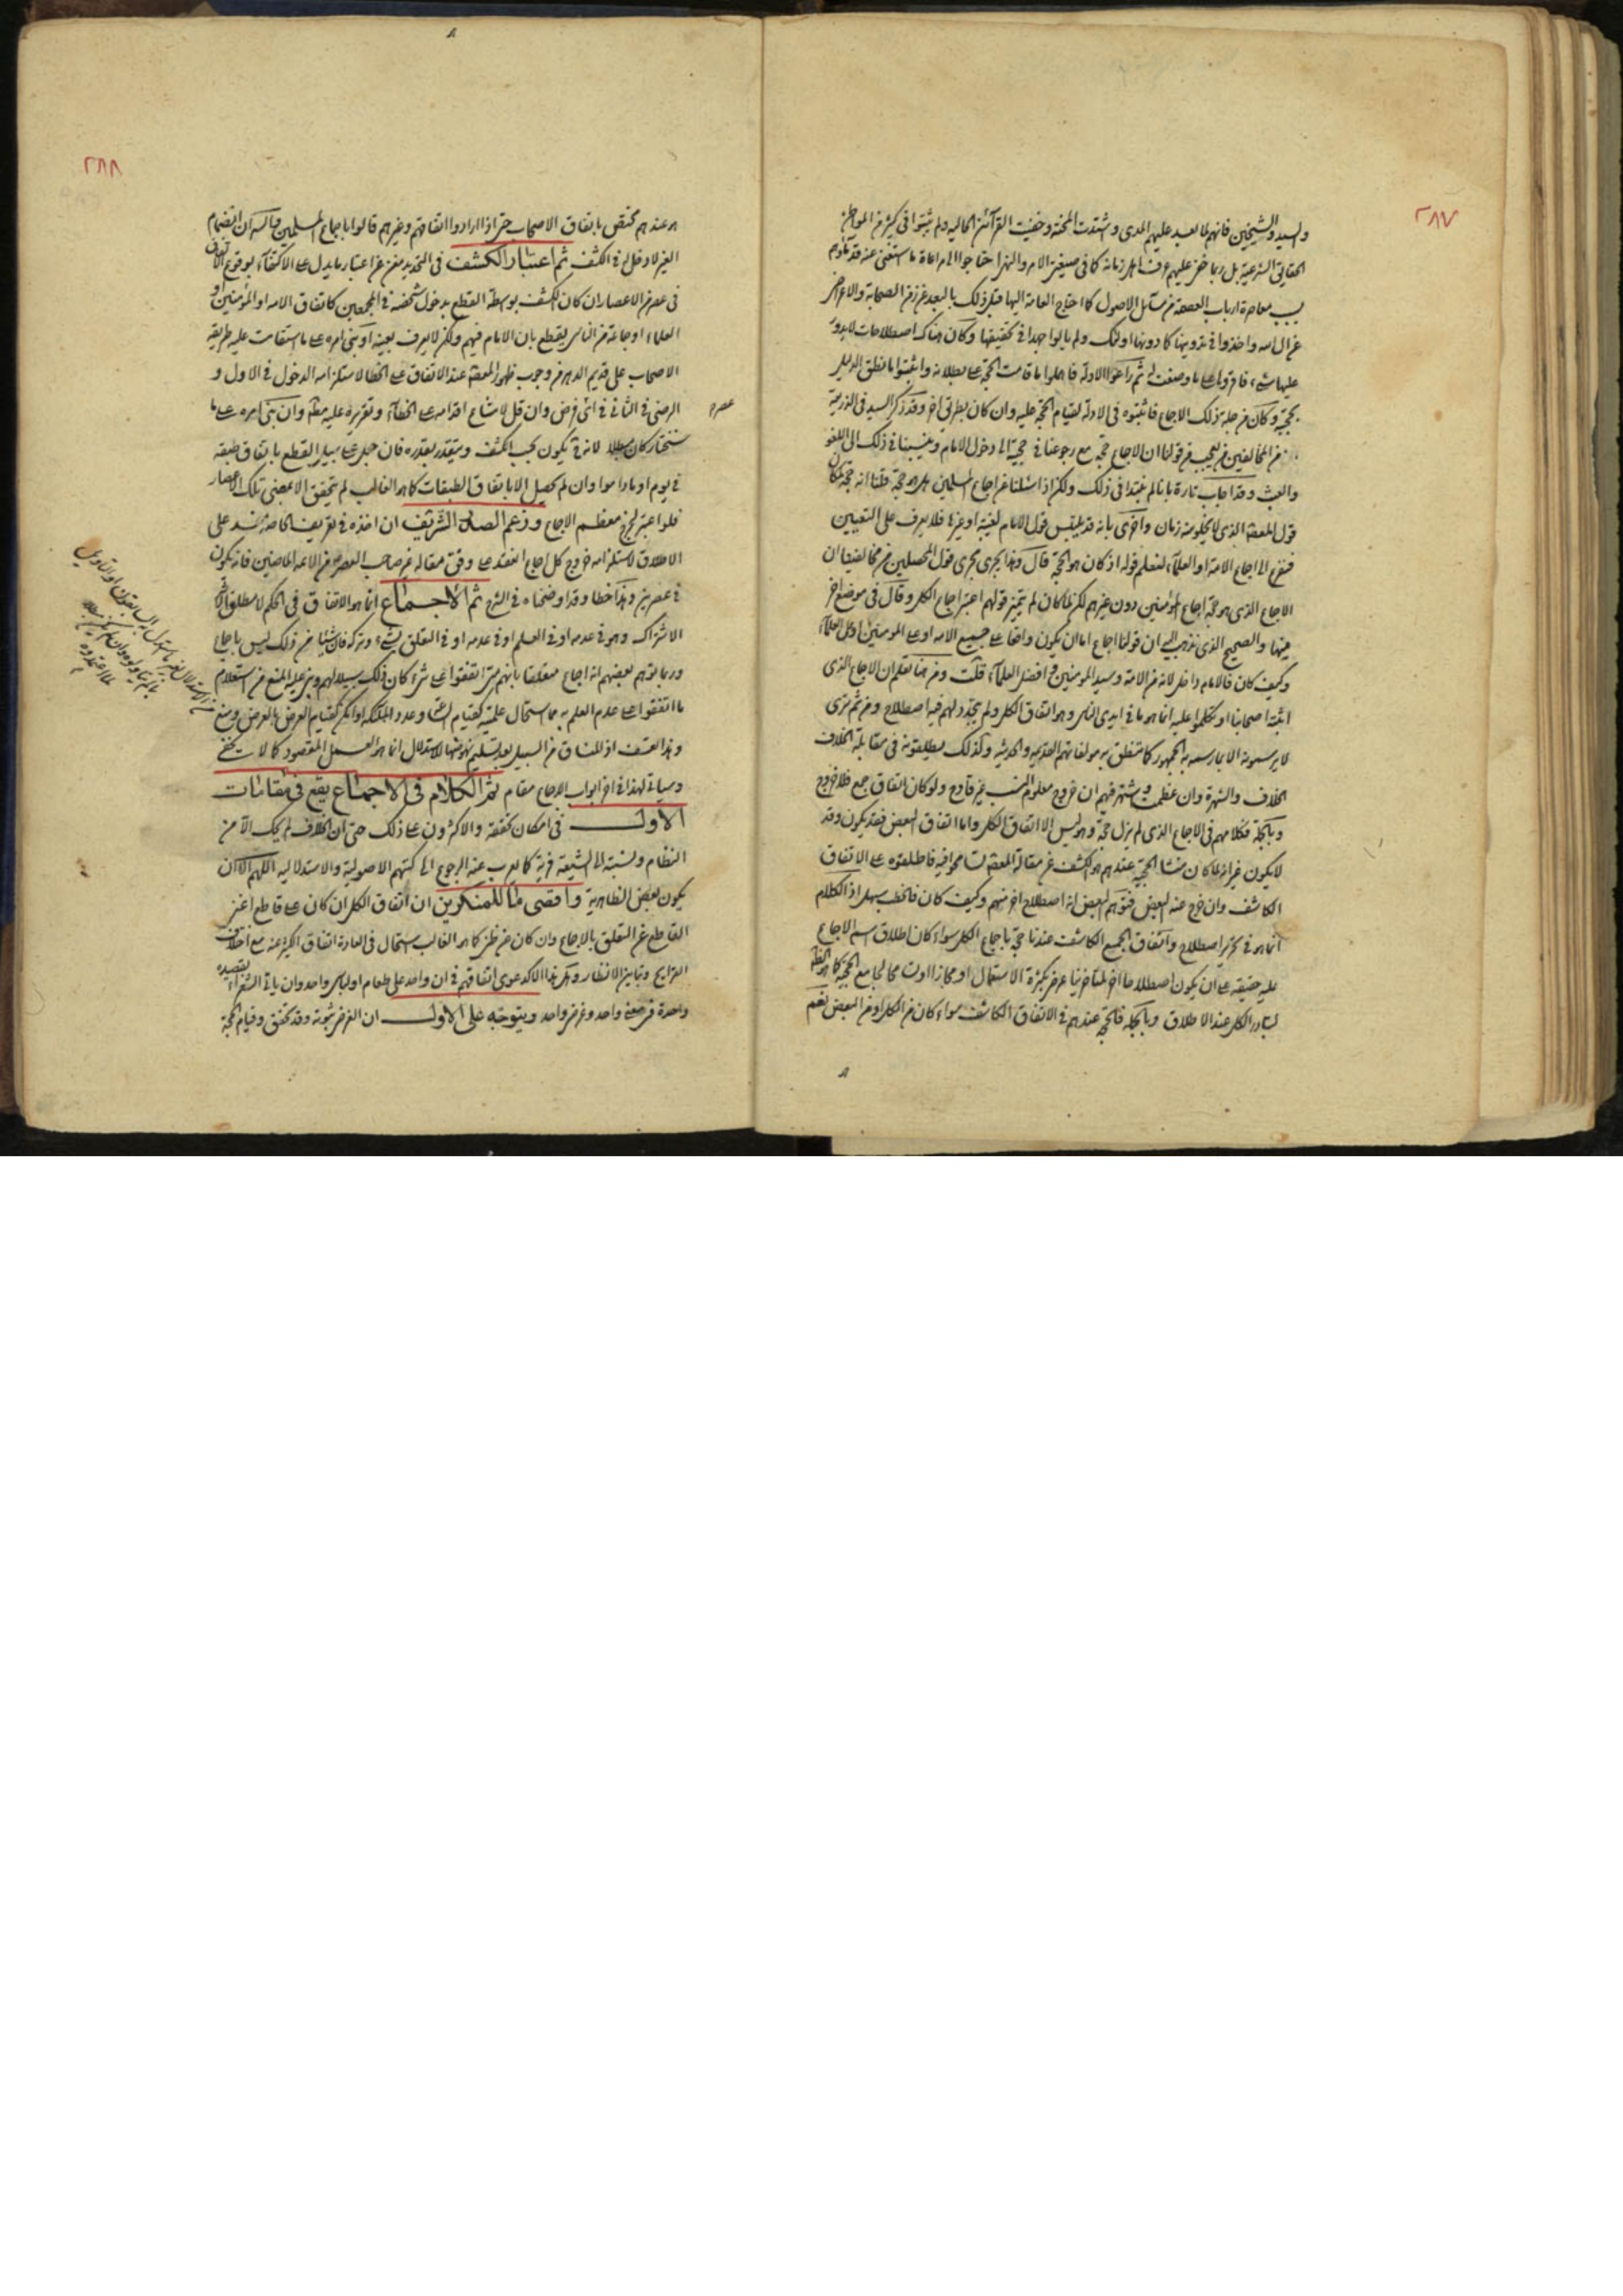 ٢٨٧
والسيد والشيخين فانهم لما بعد عليهم المدى واشتدت المحنة وخفيت القرآئن الحاليه ولم يثبتوا فى كثير من المواطن
الحقايق الشرعية بل ربما خفى عليهم عرف اهل زمانه كما فى صيغتى الامر والنهى احتاجوا الى مراعاة ما استغنى عنه قدمآؤهم
بسبب معاصرة ارباب العصمة من مسآئل الاصول كما احتاج العامة اليها قبل ذلك بالبعد عن زمن الصحابة والاعراض
عن الال واخذوا فى تدوينها كما دونها اولئك ولم يالوا جهدا فى تحقيقها وكان هناك اصطلاحات لا يدور
عليها شىء فاقروها على ما وضعت له ثم راعوا الادلة فاهملوا ما قامت الحجة على بطلانه واثبتوا ما نطق الدليل
بحجيته وكان من جملة ذلك الاجماع فاثبتوه فى الادلة لقيام الحجة عليه وان كان بطريق اخر وقد ذكر السيد فى الذريعة
من المخالفين من يعجب من قولنا ان الاجماع حجة مع رجوعنا فى حجيته الى دخول الامام وينسبنا فى ذلك الى اللغو
والعبث وقد اجاب تارة بانا لم نبتدا فى ذلك ولكن اذا سئلنا عن اجماع المسلمين هل هو حجة قلنا انه حجة لمكان
قول المعصوم الذى لا يخلو منه زمان واخرى بانه قد يلتبس قول الامام لغيبة او غيرها فلا يعرف على التعيين
فنفزع الى اجماع الامة او العلمآء لنعلم قوله اذ كان هو الحجة قال وهذا يجرى مجرى قول المحصلين من مخالفينا ان
الاجماع الذى هو حجة اجماع المؤمنين دون غيرهم لكن لما كان لم يتميز قولهم اعتبر اجماع الكل وقال فى موضع اخر
منها والصحيح الذى نذهب اليه ان قولنا اجماع اما ان يكون واقعا على جميع الامه او على المؤمنين او على العلمآء
وكيف كان فالامام داخل لانه من الامة وسيد المؤمنين وافضل العلمآء قلت ومن هنا تعلم ان الاجماع الذى
اثبته اصحابنا وتكلموا عليه انما هو ما فى ايدى الناس وهو اتفاق الكل ولم يتجدد لهم فيه اصطلاح ومن ثم ترى
لا يرسمونه الا بما رسمه به الجمهور كما تنطق به مولفاتهم القديمه والحديثه وكذلك يطلقونه فى مقابلة الخلاف
الخلاف والشهرة وان عظمت واشتهر فيهم ان خروج معلوم النسب غير قادح ولو كان اتفاق جمع فلا خروج
وبالجملة فكلامهم فى الاجماع الذى لم يزل حجة وهو ليس الا اتفاق الكل واما اتفاق البعض فقد يكون وقد
لا يكون غير انه لما كان منشا الحجية عندهم هو الكشف عن مقالة المعصوم
الكاشف وان خرج عنه البعض فتوهم البعض انه اصطلاح اخر منهم وكيف كان فالخطب سهل اذ الكلام
انما هو فى تحرير اصطلاح واتفاق الجميع الكاشف عندنا حجة باجماع الكل سواء كان اطلاق اسم الاجماع
عليه حقيقة على ان يكون اصطلاحا اخر لمتاخرينا عرض بكثرة الاستعمال او مجازا
لتبادر الكل عند الاطلاق وبالجملة فالحجة عندهم فى الاتفاق الكاشف سواء كان من الكل او من البعض نعم
٢٨٨
هو عندهم مختص باتفاق الاصحاب حتى اذا ارادوا اتفاقهم وغيرهم قالوا باجماع المسلمين والسر ان انضمام
الغير لا دخل له فى الكشف ثم اعتبار الكشف فى التحديد مغن عن اعتبار ما يدل على الاكتفآء بوقوع الاتفاق
فى عصر من الاعصار ان كان الكشف بوسطة القطع بدخول شخصه فى المجمعين كاتفاق الامه او المؤمنين او
العلماء او جماعة من الناس يقطع بان الامام فيهم ولكن لا يعرف بعينه او بنى امره على ما استقامت عليه طريقه
الاصحاب على قديم الدهر من وجوب ظهور المعصوم عند الاتفاق على الخطا لاستلزامه الدخول فى الاول و
الرضى فى الثانى فى اى عصر فرض وان قل لامتناع اقدامه على الخطآء وتقريره عليه وان بنى امره على ما
نختار كان لانه يكون بحسب الكشف ويتقدر بقدره فان حصل على سبيل القطع باتفاق طبقة
فى يوم او ما داموا وان لم يحصل الا باتفاق الطبقات كما هو الغالب لم يتحقق الا بمضى تلك الاعصار
فلو اعتبر لخرج معظم الاجماع وزعم الصالح الشريف ان اخذه فى تعريف الخاصة مفسد على
الاطلاق لاستلزامه خروج كل اجماع انعقد على وفق مقالة غير صاحب العصر من الائمه الماضين فانه يكون
فى عصرين وهذا خطا وقد اوضحناه فى الشرح ثم الاجماع انما هو الاتفاق فى الحكم لا مطلق
الاشتراك وهو فى عدمه او فى العلم او فى عدمه او فى التعلق بشىء او تركه فان شيئا من ذلك ليس باجماع
وربما توهم بعضهم انه اجماع متعلقا بانهم متى اتفقوا على شىء كان ذلك سبيلا لهم وبنى عليه المنع من استعلام
ما اتفقوا على عدم العلم به مما استحال علمه
وهذا تعسف اذ المنساق من السبيل بعد تسليم نهوضها للاستدلال انما هو العمل المقصود كما لا يخفى
وسياتى لهذا فى اخر ابواب الاجماع مقام ثم الكلام فى الاجماع يقع فى مقامات
الاول فى امكان تحققه والاكثرون على ذلك حتى ان الخلاف لم يحك الا من
النظام ونسبته الى الشيعة فرية كما يعرب عنه الرجوع الى كتبهم الاصولية والاستدلاليه اللهم الا ان
يكون بعض الظاهرية واقصى ما للمنكرين ان اتفاق الكل ان كان على قاطع اغنى
القاطع عن التعلق بالاجماع وان كان عن ظن كما هو الغالب استحال فى العادة اتفاق الكثير عنه مع اختلاف
القرايح وتباين الانظار وهل هذا الا كدعوى اتفاقهم فى ان واحد على طعام او لباس واحد وان ياتى الشعرآء بقصيده
واحدة فى معنى واحد وغرض واحد ويتوجه على الاول ان الغرض ثبوته وقد تحقق وقيام الحجة
عصر